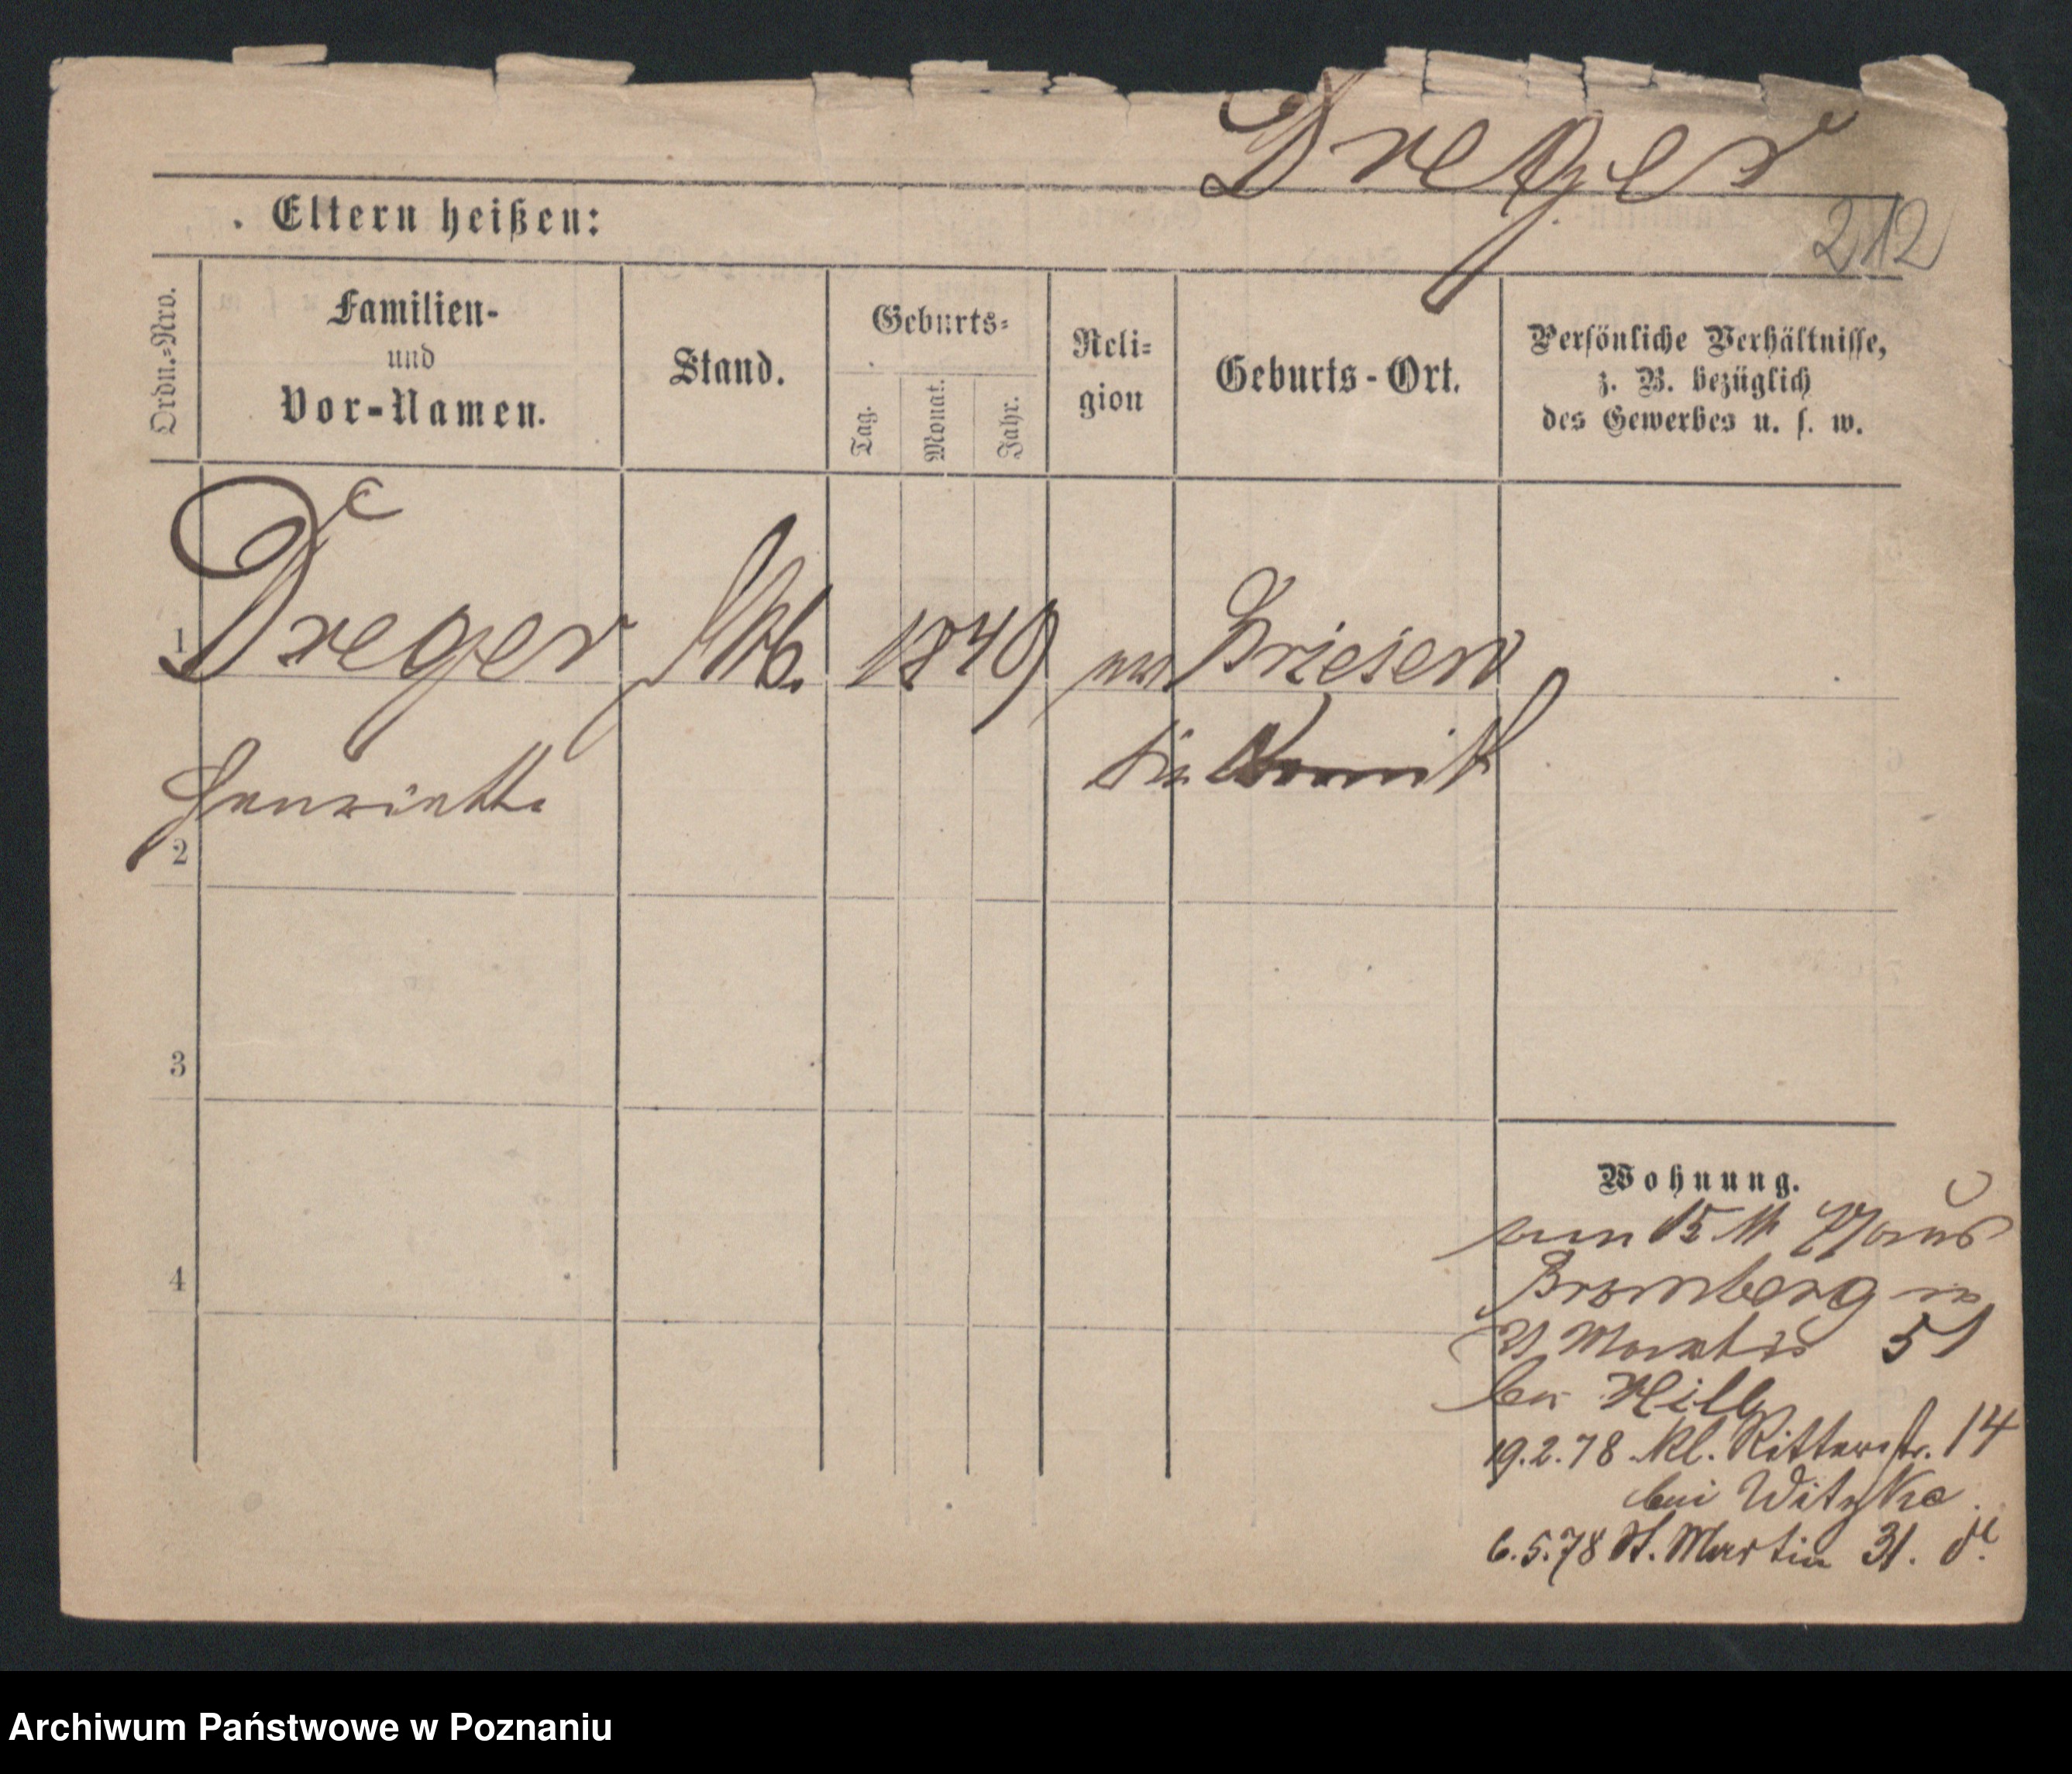 Dreger
212
. Eltern heißen:
Ordn.=Nro.
Familien-
und
Vor-Namen.
Stand.
Geburts=
Tag.
Monat.
Jahr.
Reli=
gion
Geburts-Ort.
Persönliche Verhältnisse,
z. B. bezüglich
des Gewerbes u. s. w.
1 Dreger 1849 Briesen
Henriette
2
3
4
Wohnung.
15
Bromberg
St Martin 51
bei Hill
19.2.78 kl. Ritterstr. 14
bei Witzke
6.5.78 St. Martin 31.
Archiwum Państwowe w Poznaniu